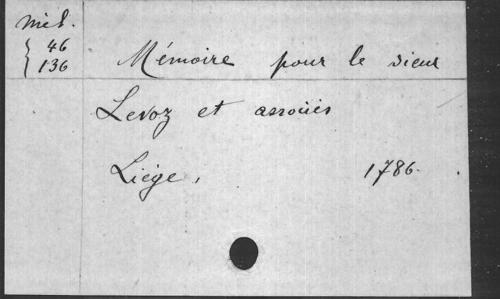 Mél.
46
136
Mémoire pour le sieur
Levoz et associés
Liége, 1786.